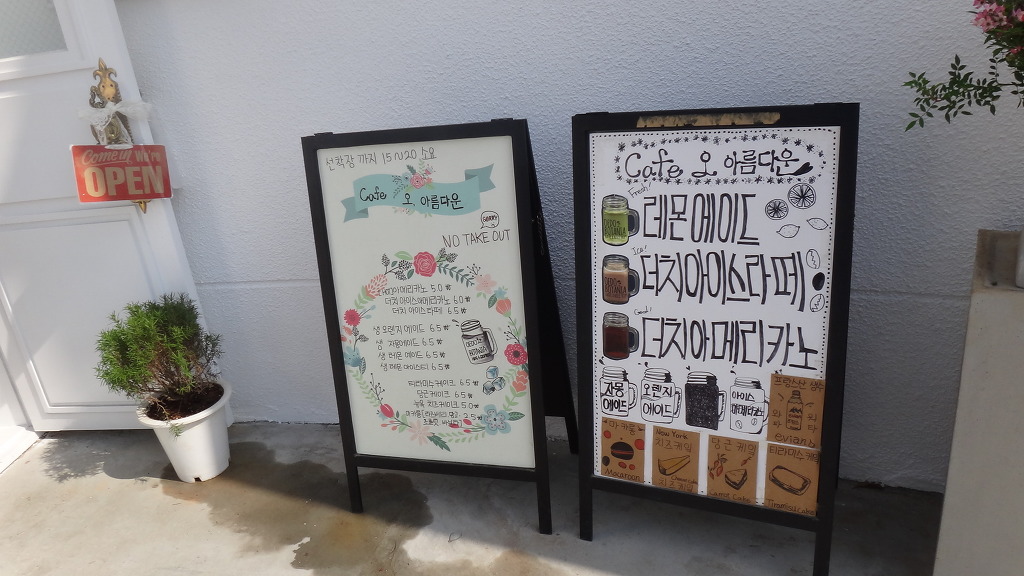 Come in We're
OPEN
선착장 까지 15~20 소요
Cafe 오 아름다운
sorry
NO TAKE OUT
더치아메리카노 5.0
더치 아이스아메리카노 6.0
더치 아이스라떼 6.5
생 오렌지 에이드 6.5
생 자몽에이드 6.5
생 레몬 에이드 6.5
생 레몬 아이스티 6.5
티라미수케이크 6.5
당근 케이크 6.5
뉴욕 치즈케이크 5.0
2.5
Cafe 오 아름다운
Fresh!
레몬에이드
Ice!
더치아이스라떼
Good!
더치아메리카노
자몽
에이드
오렌지
에이드
아이스
아메리카노
프랑스산 생수
evian
마카롱
Macaroon
New York
치즈케잌
당근케잌
Carrot Cake
티라미스케잌
Tiramisu Cake